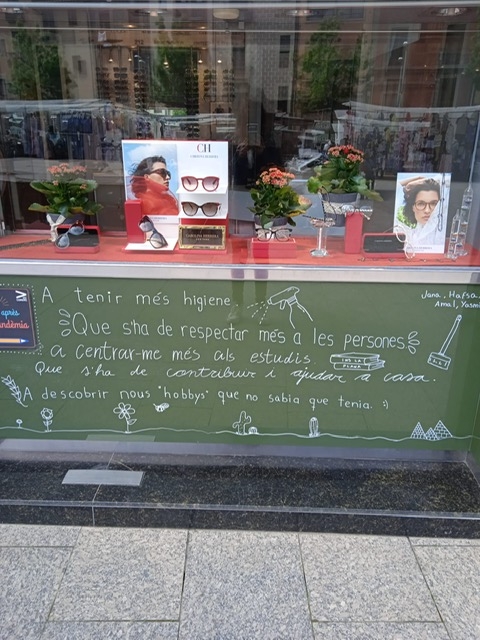 CH
CAROLINA HERRERA
CAROLINA HERRERA
A tenir més higiene.
Jana, Hafsa,
Amal, Yasmi
après
andèmia
"Que s'ha de respectar més a les persones"
a centrar-me més als estudis
Que s'ha de contribuir i ajudar a casa.
A descobrir nous "hobbys" que no sabia que tenia. :)